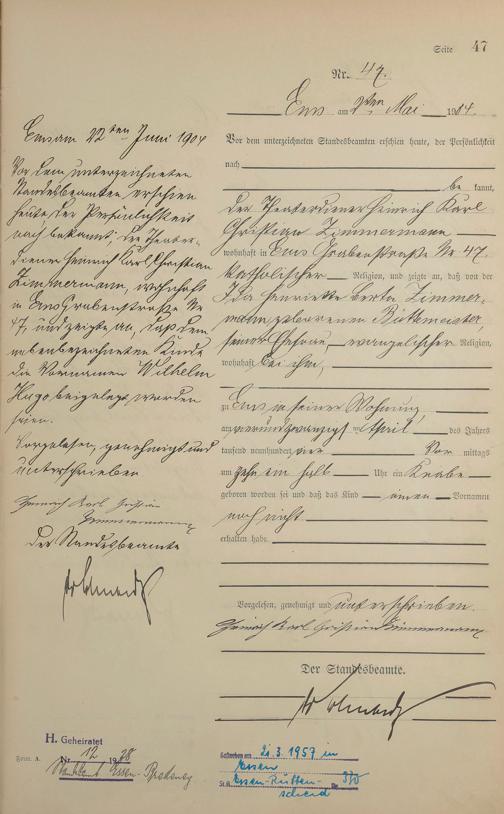 Seite 47
Nr. 47.
Ems am 2ten Mai 1904.
Vor dem unterzeichneten Standesbeamten erschien heute, der Persönlichkeit
nach
be kannt,
der Theaterdiener Heinrich Karl
Christian Zimmermann
wohnhaft in Ems Grabenstraße Nr. 47.
katholischer Religion, und zeigte an, daß von der
Ida Henriette Berta Zimmer-
mann, geborenen
seiner Ehefrau, evangelischer Religion,
wohnhaft bei ihm,
zu Ems in seiner Wohnung,
am vierundzwanzigsten April des Jahres
tausend neunhundert vier Vor mittags
um zehn ein halb Uhr ein Knabe
geboren worden sei und daß das Kind einen Vornamen
noch nicht
erhalten habe.
Vorgelesen, genehmigt und unterschrieben.
Heinrich Karl Christian Zimmermann
Der Standesbeamte.
Ems am 22ten Juni 1904
Vor dem unterzeichneten
Standesbeamten erschien
heute der Persönlichkeit
nach bekannt, der Theater-
diener Heinrich Karl Christian
Zimmermann, wohnhaft
in Ems Grabenstraße Nr
47, und zeigte an, daß dem
nebenbezeichneten Kinde
die Vornamen Wilhelm
Hugo beigelegt worden
seien.
Vorgelesen, genehmigt und
unterschrieben
Heinrich Karl Christian
Zimmermann
Der Standesbeamte
H. Geheiratet
Nr. 12 1928
Standesamt Essen-Bredeney
Form. A.
Gestorben am 21.3.1957 in
Essen
St.A. Essen-Rütten-
scheid Nr. 370